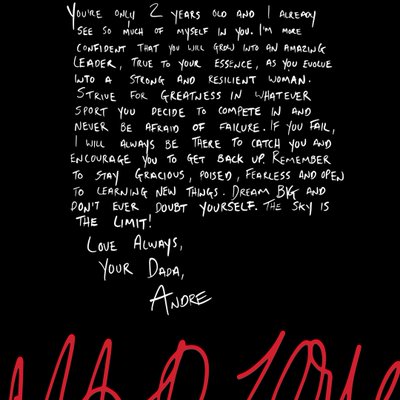 YOU'RE ONLY 2 YEARS OLD AND I ALREADY
SEE SO MUCH OF MYSELF IN YOU. I'M MORE
CONFIDENT THAT YOU WILL GROW INTO AN AMAZING
LEADER, TRUE TO YOUR ESSENCE, AS YOU EVOLVE
INTO A STRONG AND RESILIENT WOMAN.
STRIVE FOR GREATNESS IN WHATEVER
SPORT YOU DECIDE TO COMPETE IN AND
NEVER BE AFRAID OF FAILURE. IF YOU FAIL,
I WILL ALWAYS BE THERE TO CATCH YOU AND
ENCOURAGE YOU TO GET BACK UP. REMEMBER
TO STAY GRACIOUS, POISED, FEARLESS AND OPEN
TO LEARNING NEW THINGS. DREAM BIG AND
DON'T EVER DOUBT YOURSELF. THE SKY IS
THE LIMIT!
LOVE ALWAYS,
YOUR DADA,
ANDRE